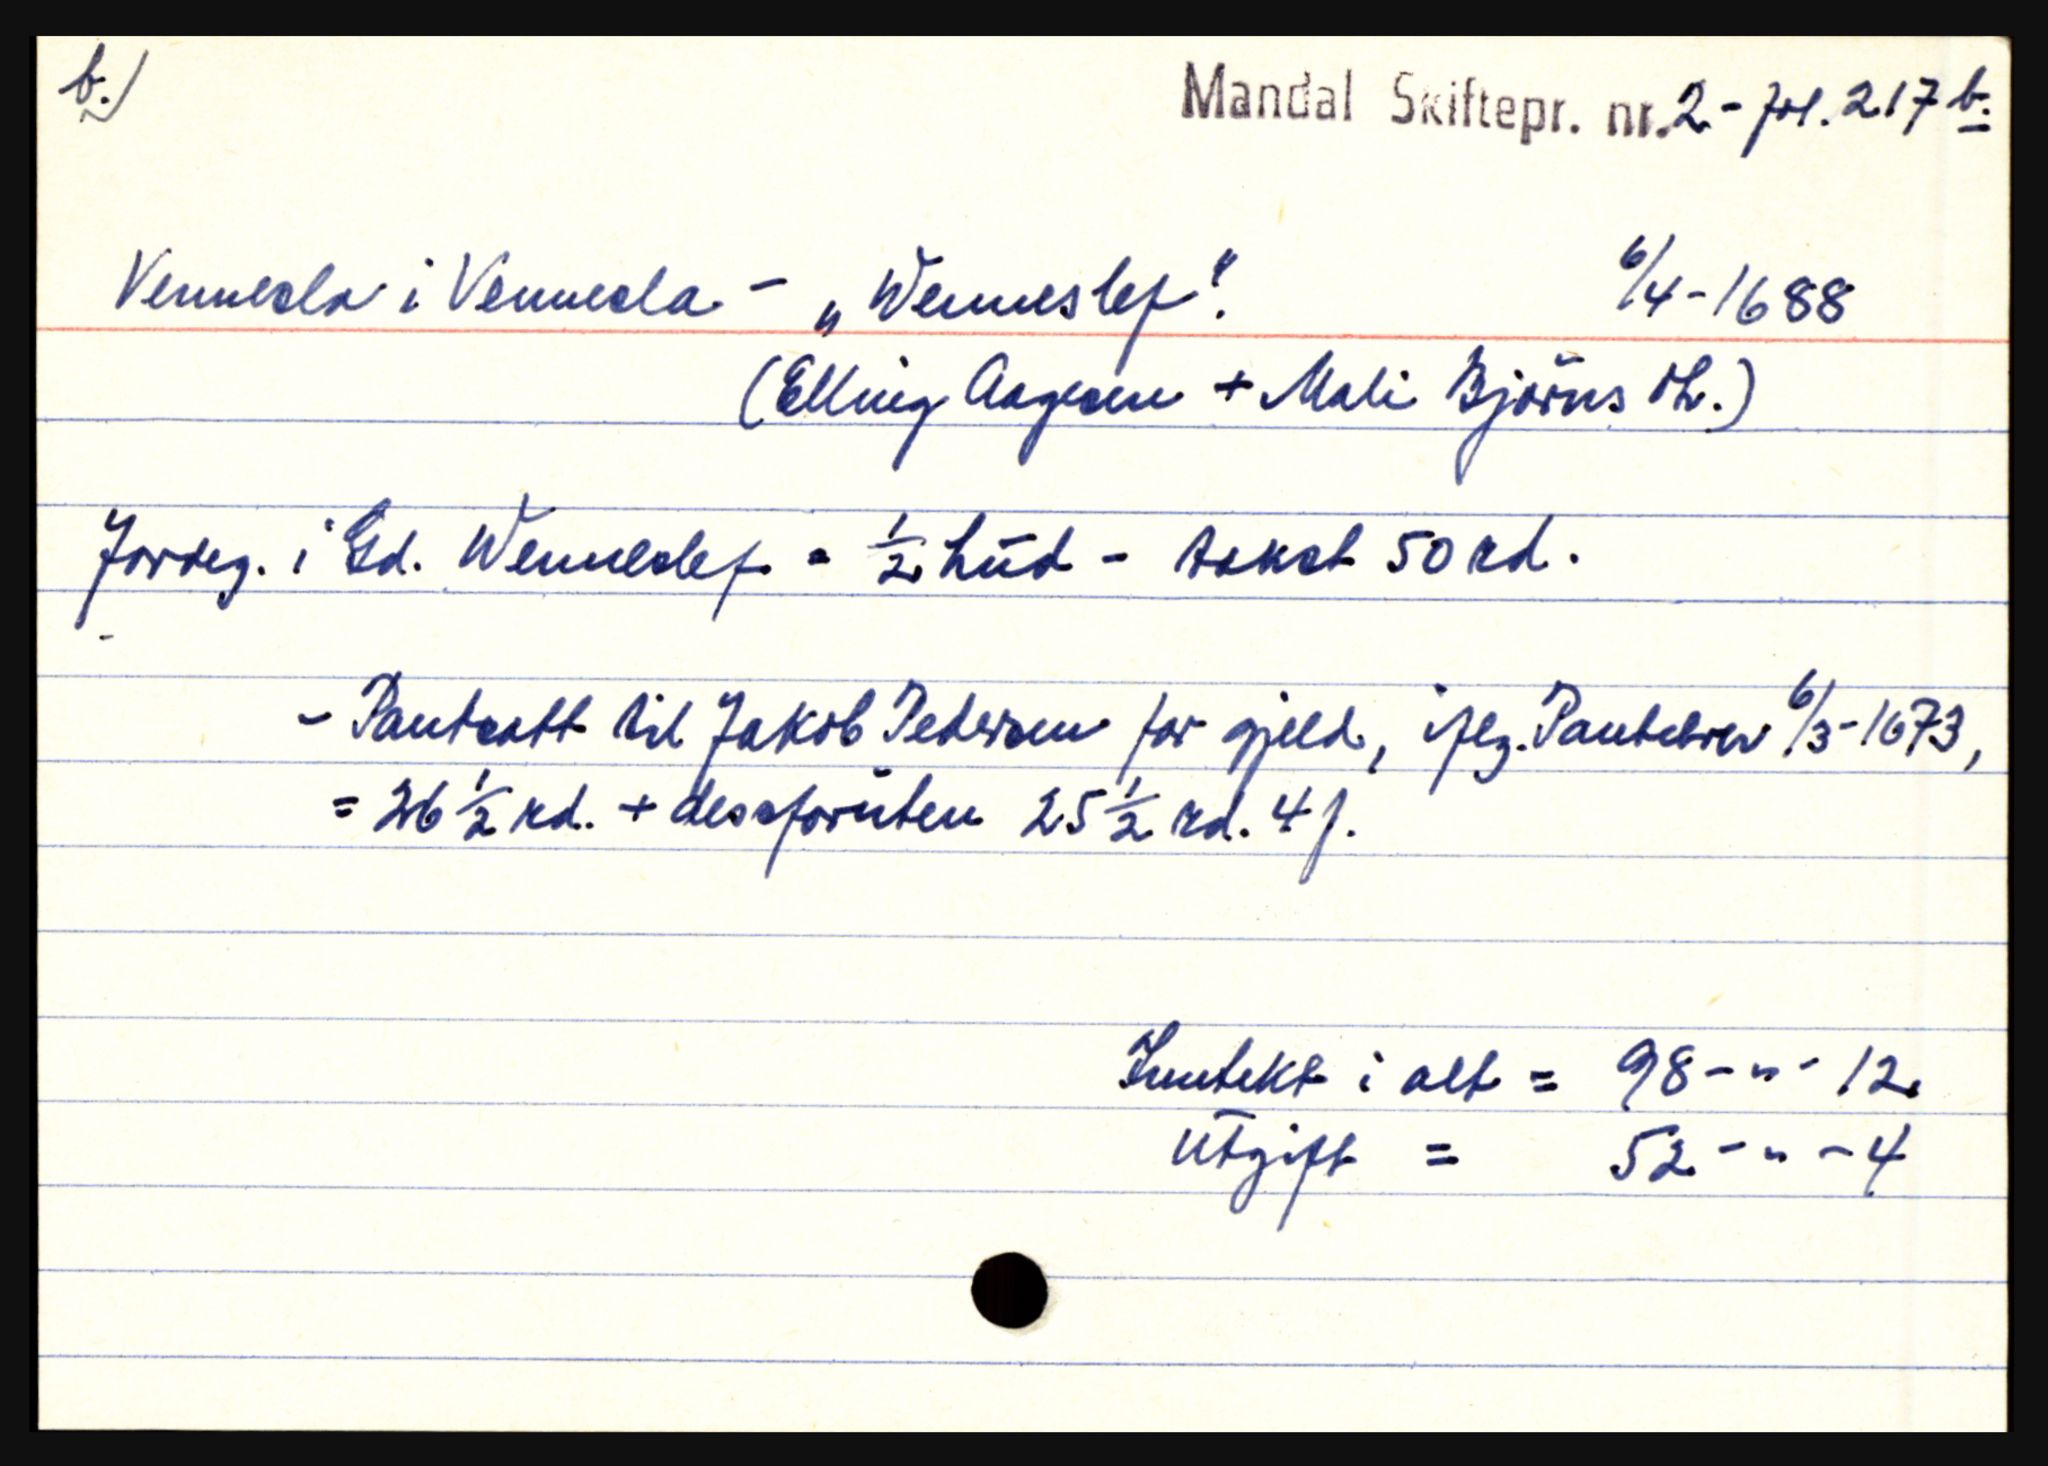 b.)
Mandal Skiftepr. nr. 2 - fol. 217 b.
Vennesla i Vennesla - „Wenneslef". 6/4-1688
(Elling Aagesen + Mali Björns dtr.)
Jordeg. i Gd. Wenneslef = 1/2 hud - takst 50 rd.
- Pantsatt til Jakob Pedersen for gjeld, iflg. Pantebrev 6/3-1673,
= 26 1/2 rd. + dessforuten 25 1/2 rd. 4 s.
Inntekt i alt = 98 - " - 12
Utgift = 52 - " - 4